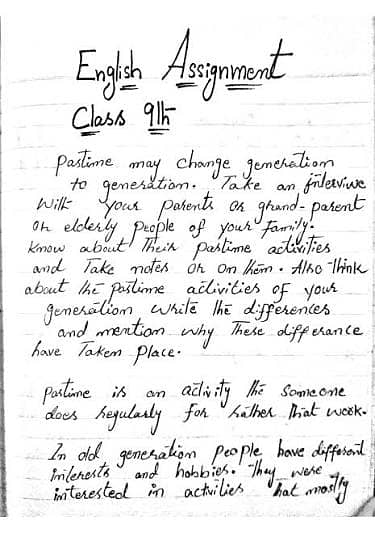 English Assignment
Class 9th
Pastime may change generation
to generation. Take an interviwe
With your parents or grand-parent
or elderly people of your family.
Know about their pastime activities
and Take notes on them. Also Think
about the pastime activities of your
generation write the differences
and mention why These differance
have Taken place.
Pastime is an activity the someone
does regularly for rather that work.
In old generation people have different
interests and hobbies. They were
interested in activities that mostly